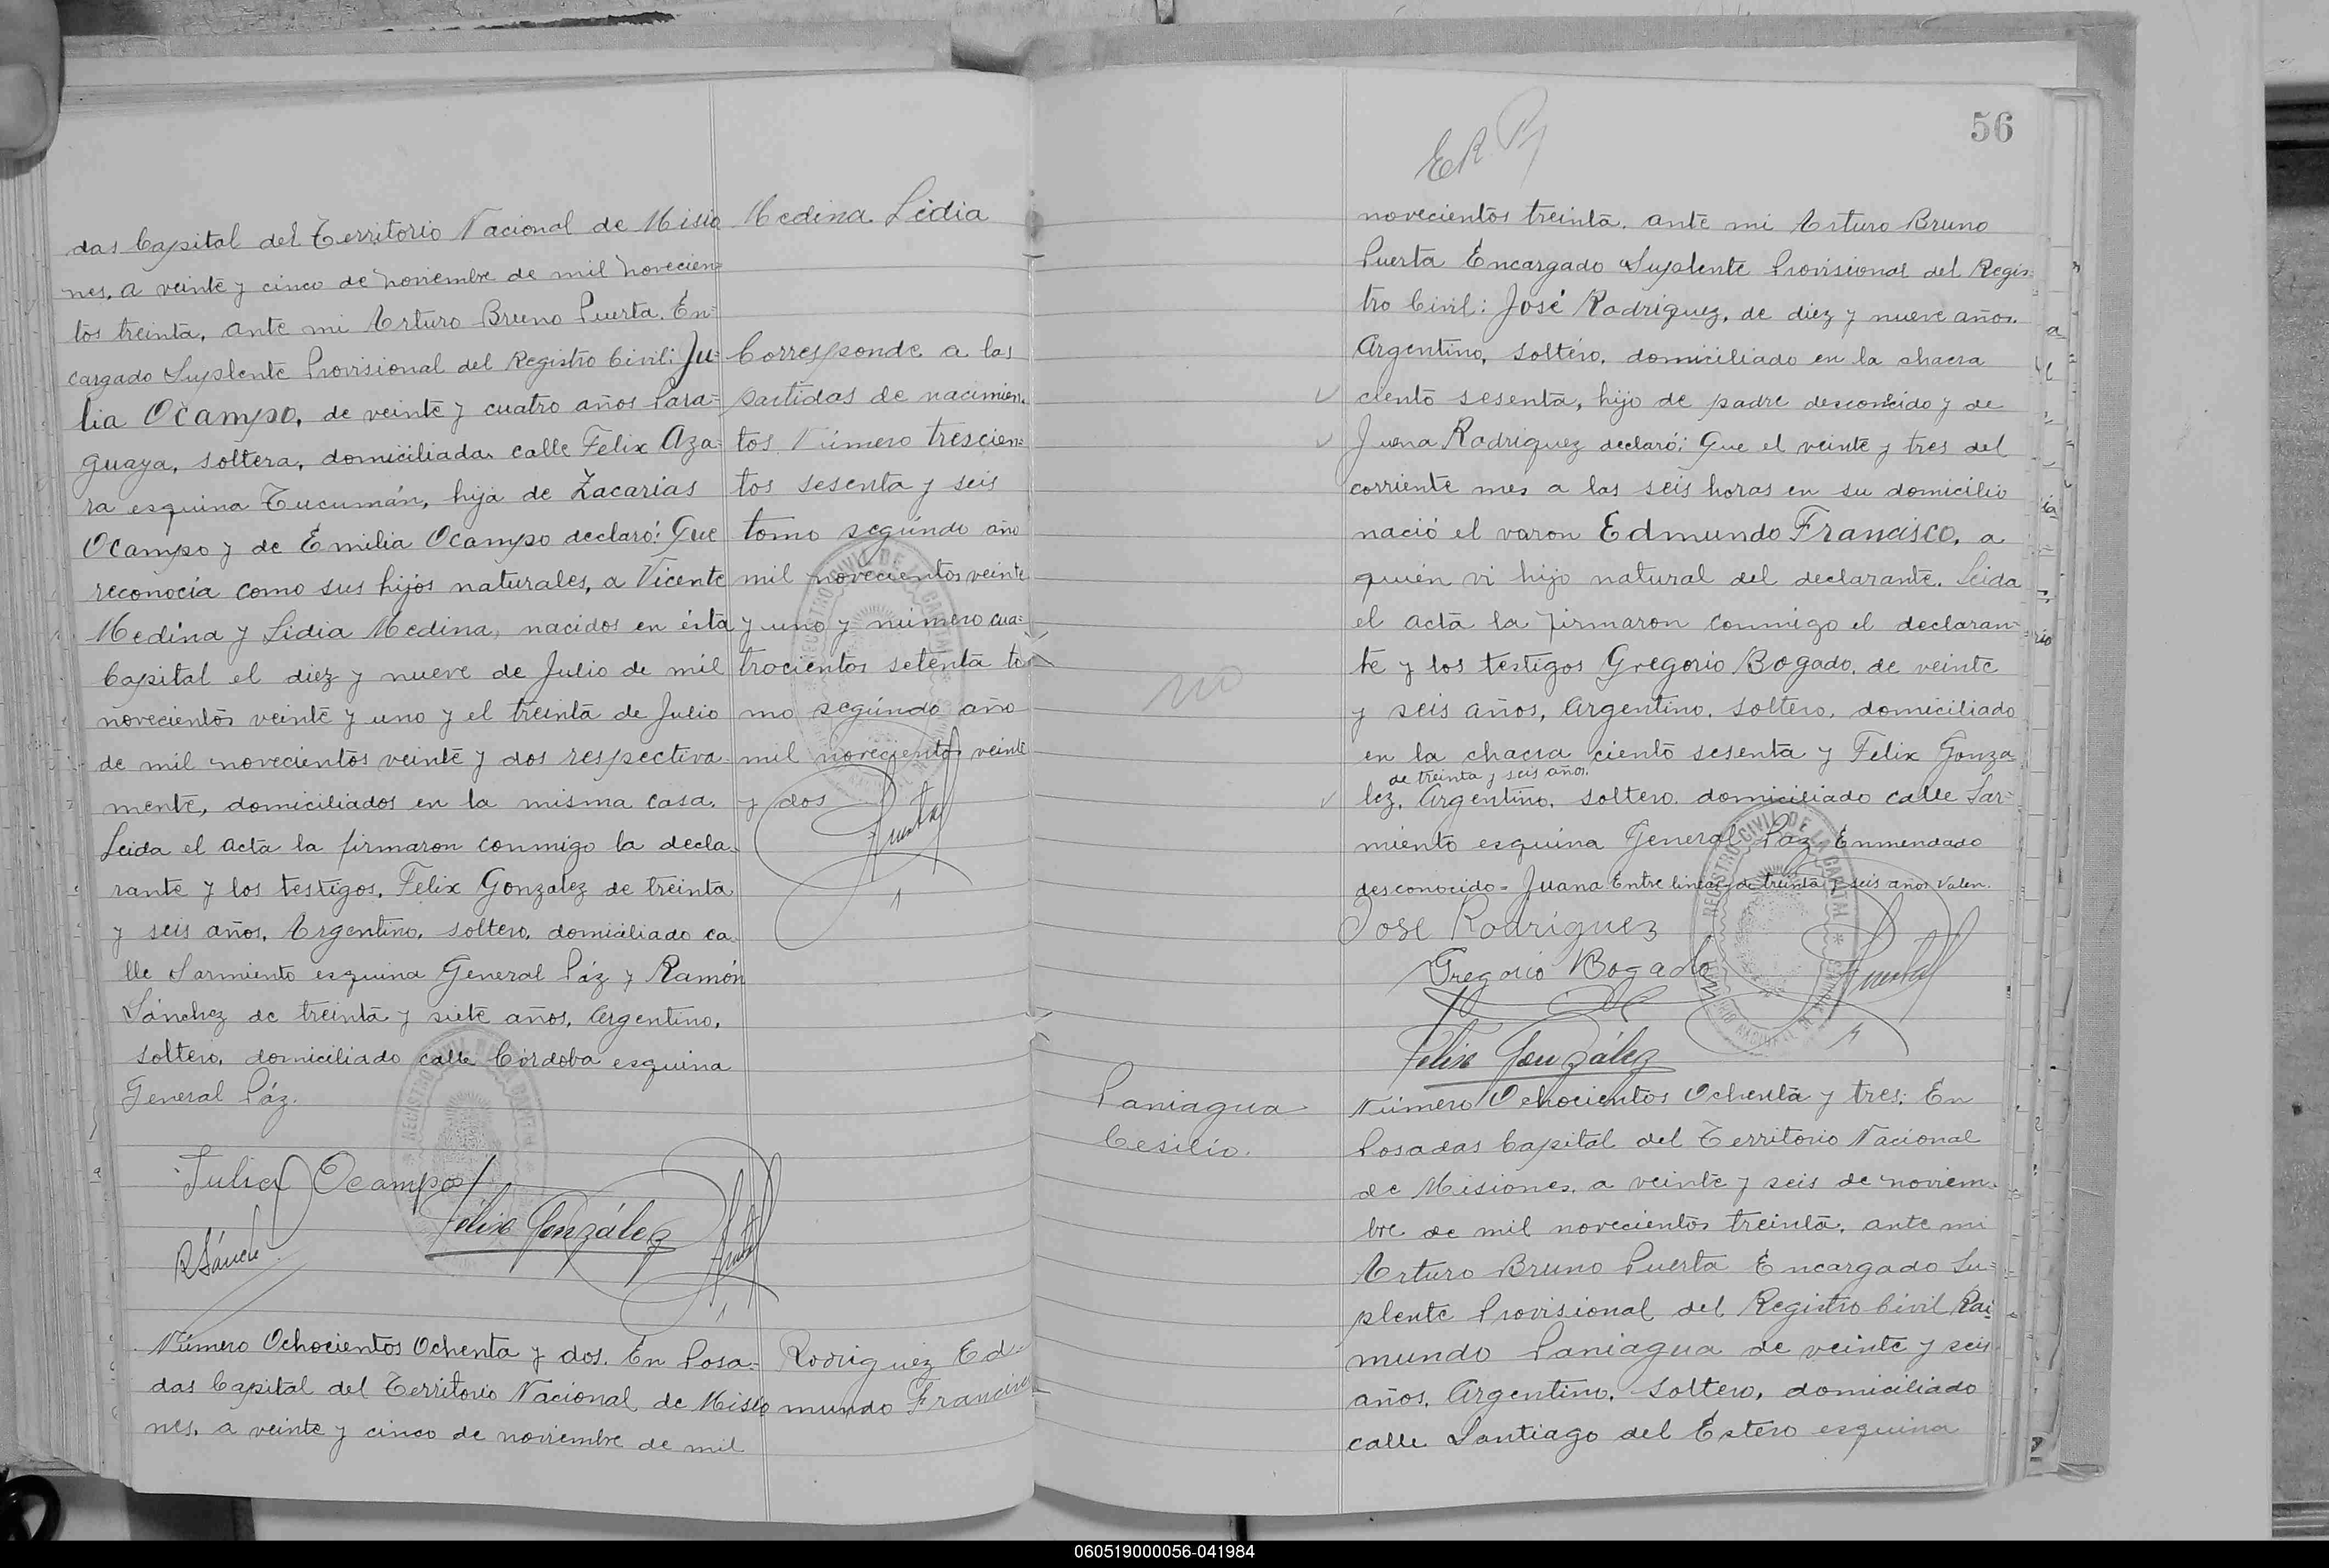 das Capital del Territorio Nacional de Misio
nes, a veinte y cinco de noviembre de mil novecien=
tos treinta, ante mi Arturo Bruno Puerta. En=
cargado Suplente Provisional del Registro Civil: Ju=
lia Ocampo, de veinte y cuatro años Para=
guaya, soltera, domiciliada calle Felix Aza=
ra esquina Tucumán, hija de Zacarias
Ocampo y de Emilia Ocampo declaró: Que
reconocía como sus hijos naturales, a Vicente
Medina y Lidia Medina, nacidos en ésta
Capital el diez y nueve de Julio de mil
novecientos veinte y uno y el treinta de Julio
de mil novecientos veinte y dos respectiva
mente, domiciliados en la misma casa.
Leida el acta la firmaron conmigo la decla.
rante y los testigos, Felix Gonzalez de treinta
y seis años, Argentino, soltero, domiciliado ca
lle Sarmiento esquina General Páz y Ramón
Sánchez de treinta y siete años, Argentino,
soltero, domiciliado calle Córdoba esquina
General Páz.
Julia Ocampo
Felix González
RSánchez
Número Ochocientos Ochenta y dos. En Posa=
das Capital del Territorio Nacional de Misio
nes, a veinte y cinco de noviembre de mil
Medina Lidia
Corresponde a las
partidas de nacimien.
tos Número trescien=
tos sesenta y seis
tomo segundo año
mil novecientos veinte
y uno y número cua=
trocientos setenta to
mo segundo año
mil novecientos veinte
y dos
Puerta
Rodriguez Ed.
mundo Francisco
56
novecientos treinta. ante mi Arturo Bruno
Puerta Encargado Suplente Provisional del Regis=
tro Civil: José Rodriguez, de diez y nueve años.
Argentino, soltero, domiciliado en la chacra
ciento sesenta, hijo de padre desconocido y de
Juana Rodriguez declaró: Que el veinte y tres del
corriente mes a las seis horas en su domicilio
nació el varon Edmundo Francisco, a
quién vi hijo natural del declarante. Leida
el acta la firmaron conmigo el declaran=
te y los testigos Gregorio Bogado, de veinte
no
y seis años, Argentino. soltero, domiciliado
en la chacra ciento sesenta y Felix Gonza
de treinta y seis años.
lez, Argentino, soltero. domiciliado calle Sar=
miento esquina General Páz. Enmendado
desconocido = Juana Entre lineas de treinta y seis años Valen.
Jose Rodriguez
Gregorio Bogado
Puerta
Felix González
Paniagua
Cesilio.
Número Ochocientos Ochenta y tres: En
Posadas Capital del Territorio Nacional
de Misiones, a veinte y seis de noviem.
bre de mil novecientos treinta, ante mi
Arturo Bruno Puerta Encargado Su=
plente Provisional del Registro Civil Rai
mundo Paniagua de veinte y seis
años, Argentino, soltero, domiciliado
calle Santiago del Estero esquina
060519000056-041984